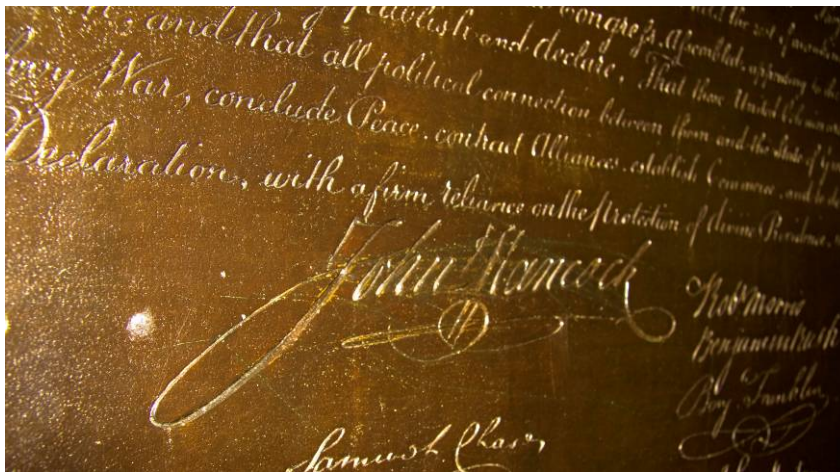 and that all political connection between them and the state of
War, conclude Peace, contract Alliances, establish Commerce, and
Declaration, with a firm reliance on the protection of divine Providence
John Hancock
Robt Morris
Benjamin Rush
Benj. Franklin
Samuel Chase